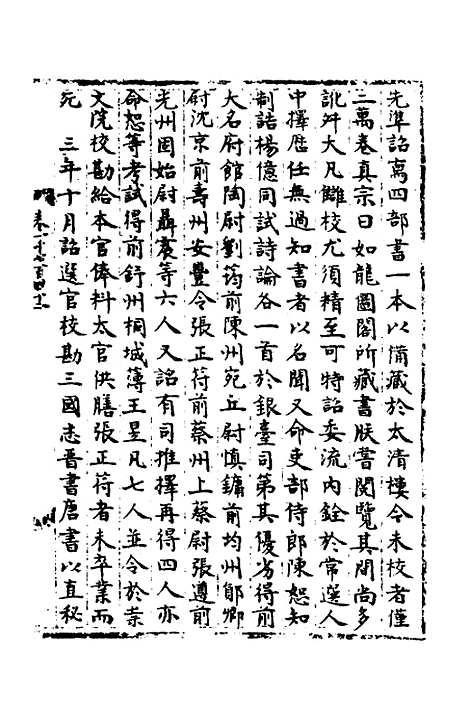 先準詔寫四部書一本以備藏於太清樓今未校者僅
二萬卷真宗曰如龍圖閣所藏書朕嘗閱覽其間尚多
訛舛大凡讎校尤須精至可特詔委流內銓於常選人
中擇歷任無過知書者以名聞又命吏部侍郎陳恕知
制誥楊億同試詩論各一首於銀臺司第其優劣得前
大名府館陶尉劉筠前陳州宛丘尉慎鏞前均州鄖鄉
尉沈京前壽州安豐令張正符前蔡州上蔡尉張遵前
光州固始尉聶震等六人又詔有司推擇再得四人亦
命恕等考試得前舒州桐城簿王昱凡七人並令於崇
文院校勘給本官俸料太官供膳張正符者未卒業而
死　三年十月詔選官校勘三國志晉書唐書以直秘